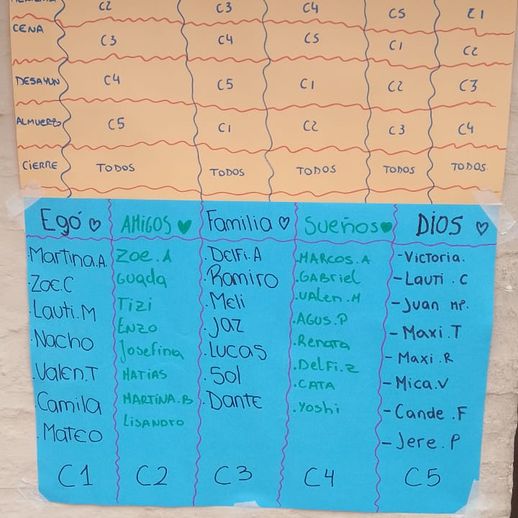 C2 C3 C4 C5 C1
CENA C3 C4 C5 C1 C2
DESAYUN C4 C5 C1 C2 C3
ALMUERZO C5 C1 C2 C3 C4
CIERRE TODOS TODOS TODOS TODOS TODOS
Egó AMIGOS Familia Sueños DIOS
Martina.A. Zoe.A .Delfi.A .MARCOS.A -Victoria.
.Zoe.C Guada .Ramiro .GABRIEL -Lauti.C
.Lauti.M Tizi .Meli .Valen.M -Juan MP.
.Nacho Enzo .Jaz .AGUS.P -Maxi.T
.Valen.T Josefina .Lucas .Renata -Maxi.R
.Camila MATIAS .Sol .DelFi.Z -Mica.V
.Mateo MARTINA.B .Dante .CATA -Cande.F
LISANDRO .Yoshi -Jere.P
C1 C2 C3 C4 C5